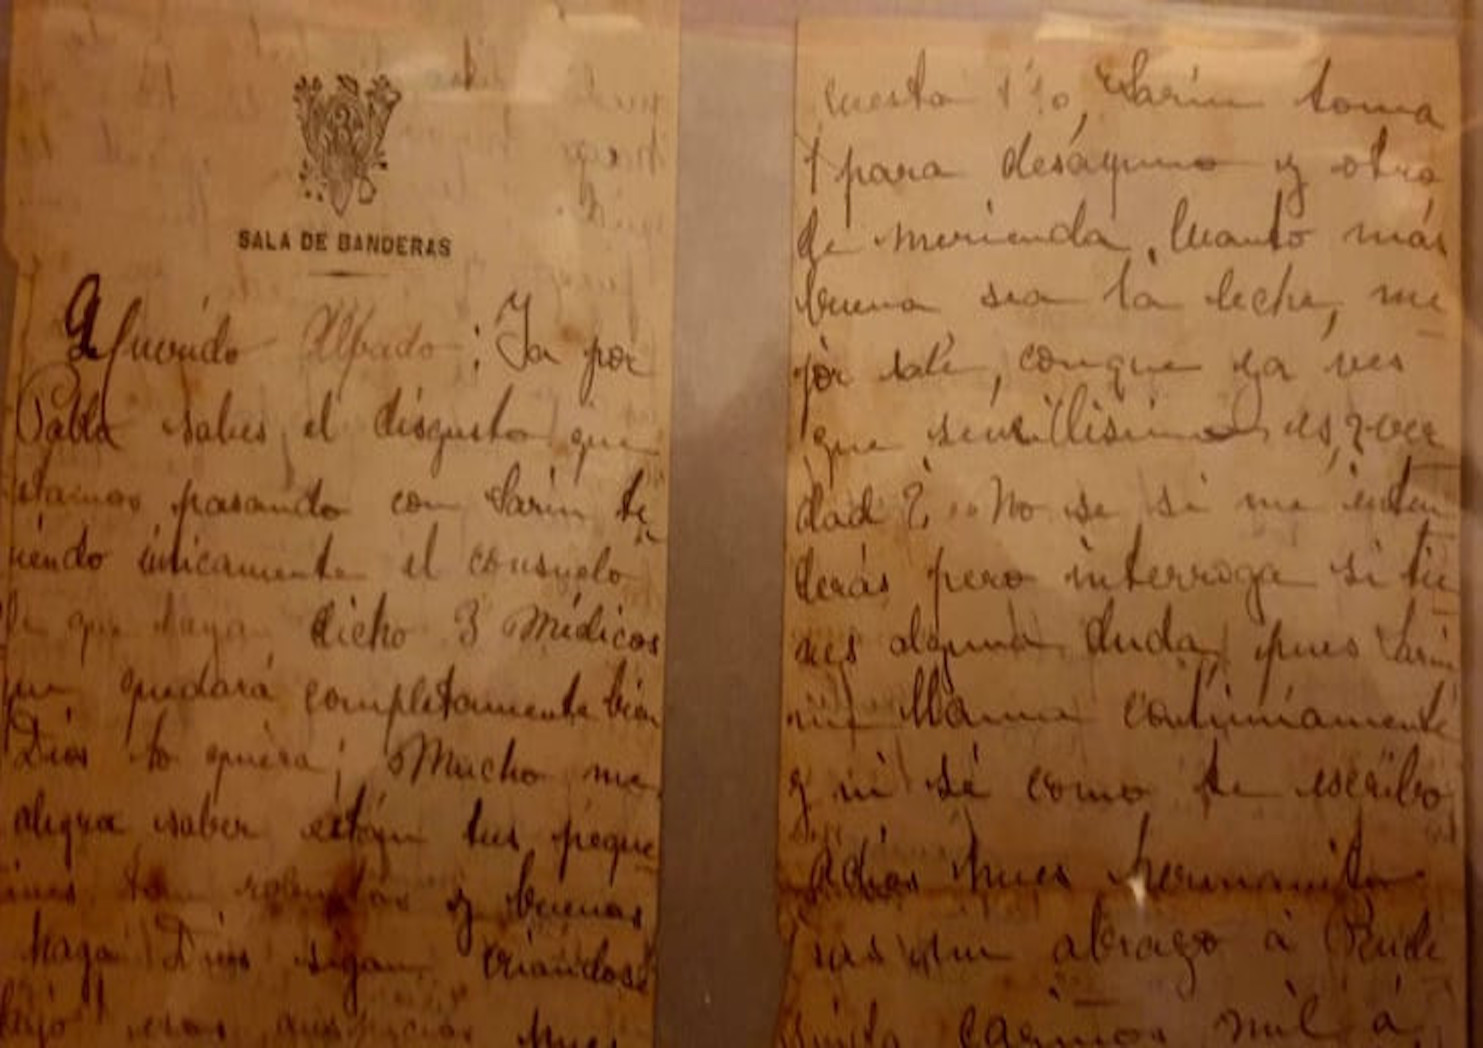 SALA DE BANDERAS
Querido Alfredo: Ya por
Pabla sabes el disgusto que
estamos pasando con Sarin te
niendo únicamente el consuelo
de que haya dicho 3 Médicos
que quedará completamente bien
Dios lo quiera; Mucho me
alegra saber están tus peque
tan robustos y buenos
haga Dios sigan criandose
bajo esos auspicios pues
cuesta 1'10, Sarin toma
1 para desayuno y otro
de merienda. Cuanto más
buena sea la leche, me
jor sale, conque ya ves
que sencillisimo es, ¿ver
dad? No se si me enten
derás pero interroga si tie
nes alguna duda, pues Sarin
me llama continuamente
y ni sé como te escribo
Adios pues hermanito
un abrazo á Rude
cariños mil á